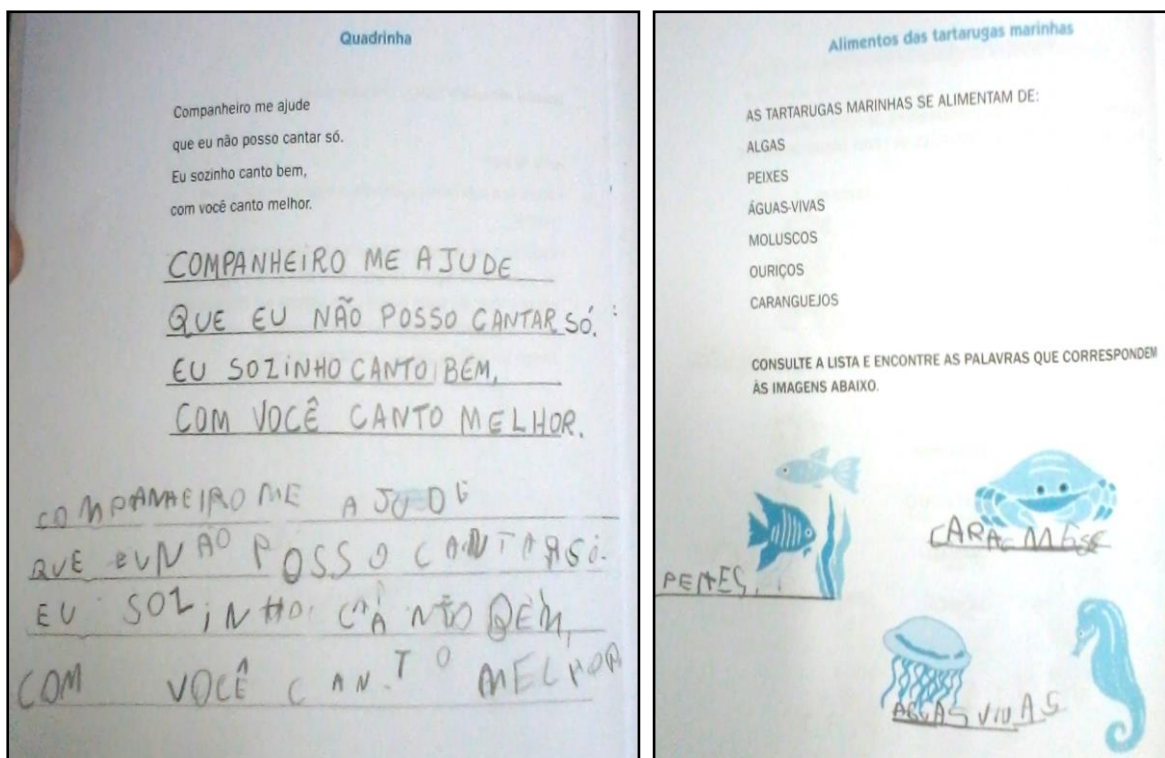 Quadrinha
Companheiro me ajude
que eu não posso cantar só.
Eu sozinho canto bem,
com você canto melhor.
COMPANHEIRO ME AJUDE
QUE EU NÃO POSSO CANTAR SÓ.
EU SOZINHO CANTO BEM,
COM VOCÊ CANTO MELHOR.
COMPANHEIRO ME AJUDE
QUE EU NÃO POSSO CANTAR SÓ.
EU SOZINHO
COM VOCÊ CANTO MELHOR
Alimentos das tartarugas marinhas
AS TARTARUGAS MARINHAS SE ALIMENTAM DE:
ALGAS
PEIXES
ÁGUAS-VIVAS
MOLUSCOS
OURIÇOS
CARANGUEJOS
CONSULTE A LISTA E ENCONTRE AS PALAVRAS QUE CORRESPONDEM
ÀS IMAGENS ABAIXO.
VIVAS